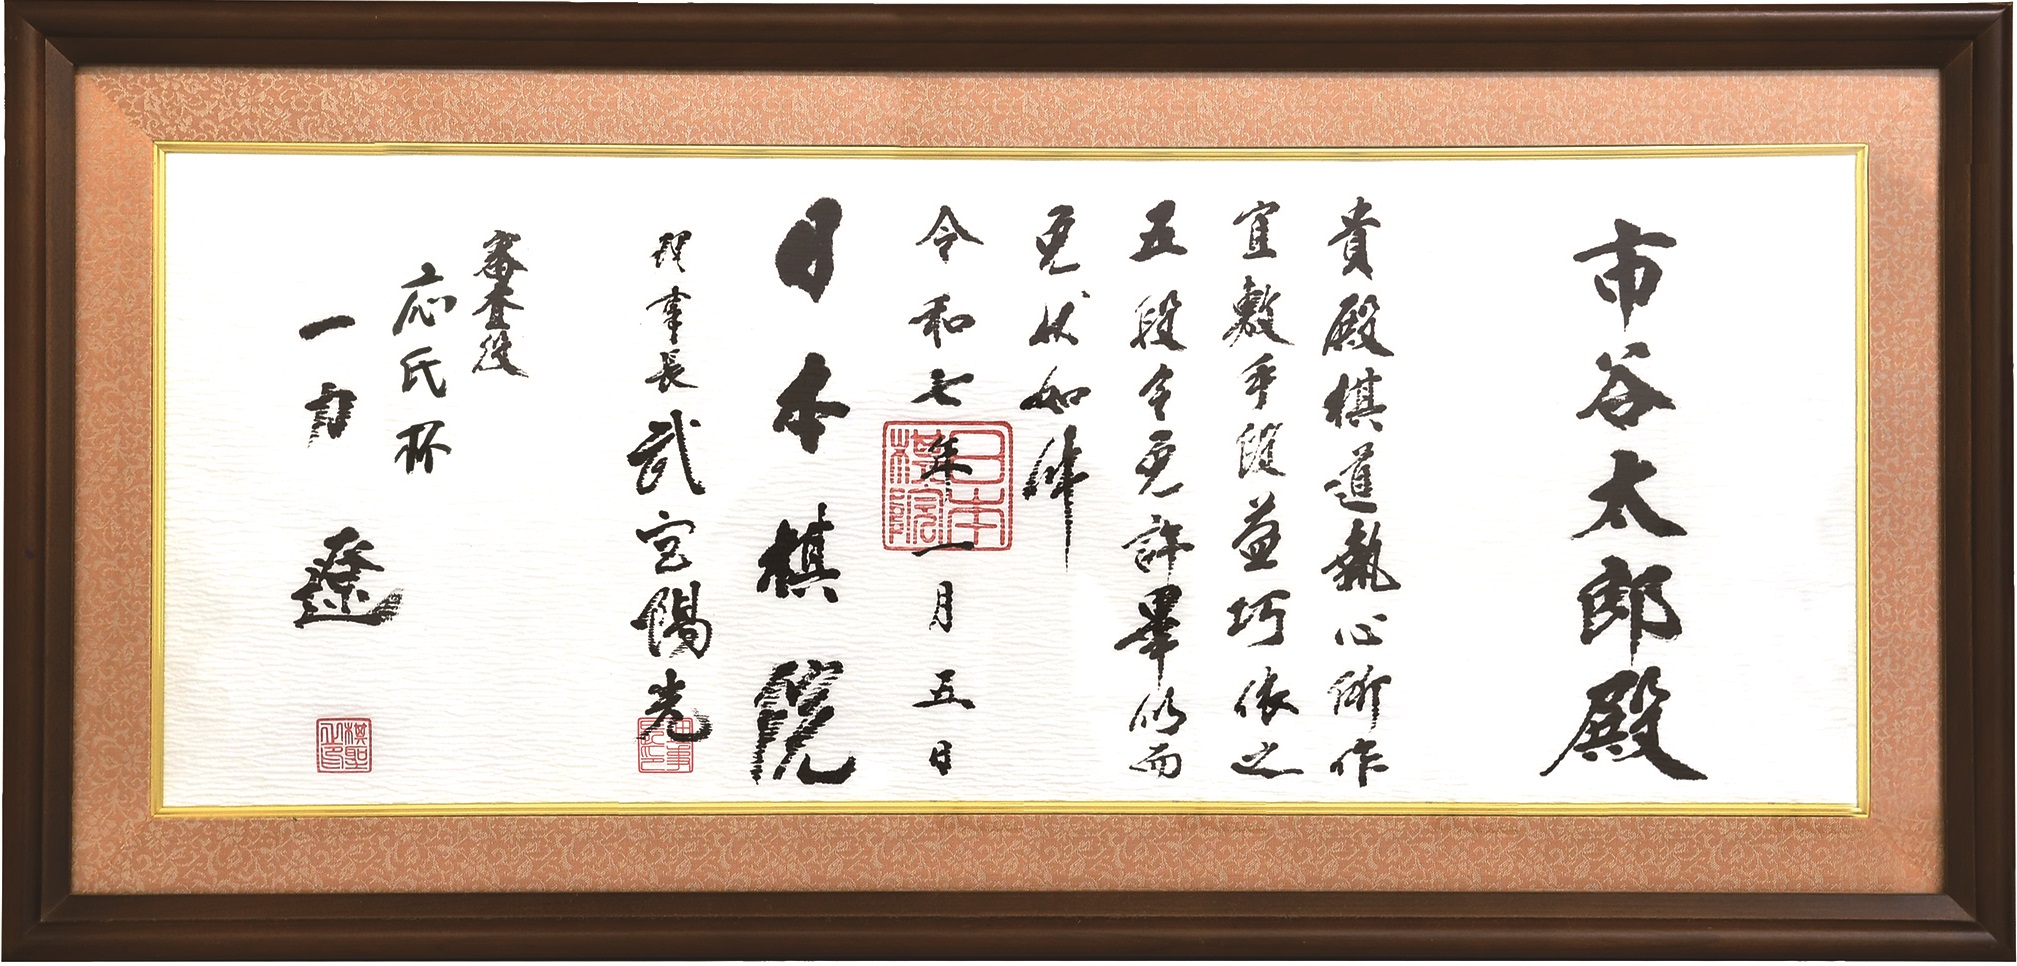 市谷太郎殿
貴殿棋道執心所作
宜敷手段益巧依之
五段令免許畢仍而
免状如件
令和七年一月五日
日本棋院
日本棋院
理事長 武宮陽光
理事長印
審査役
応氏杯
一力遼
棋聖之印